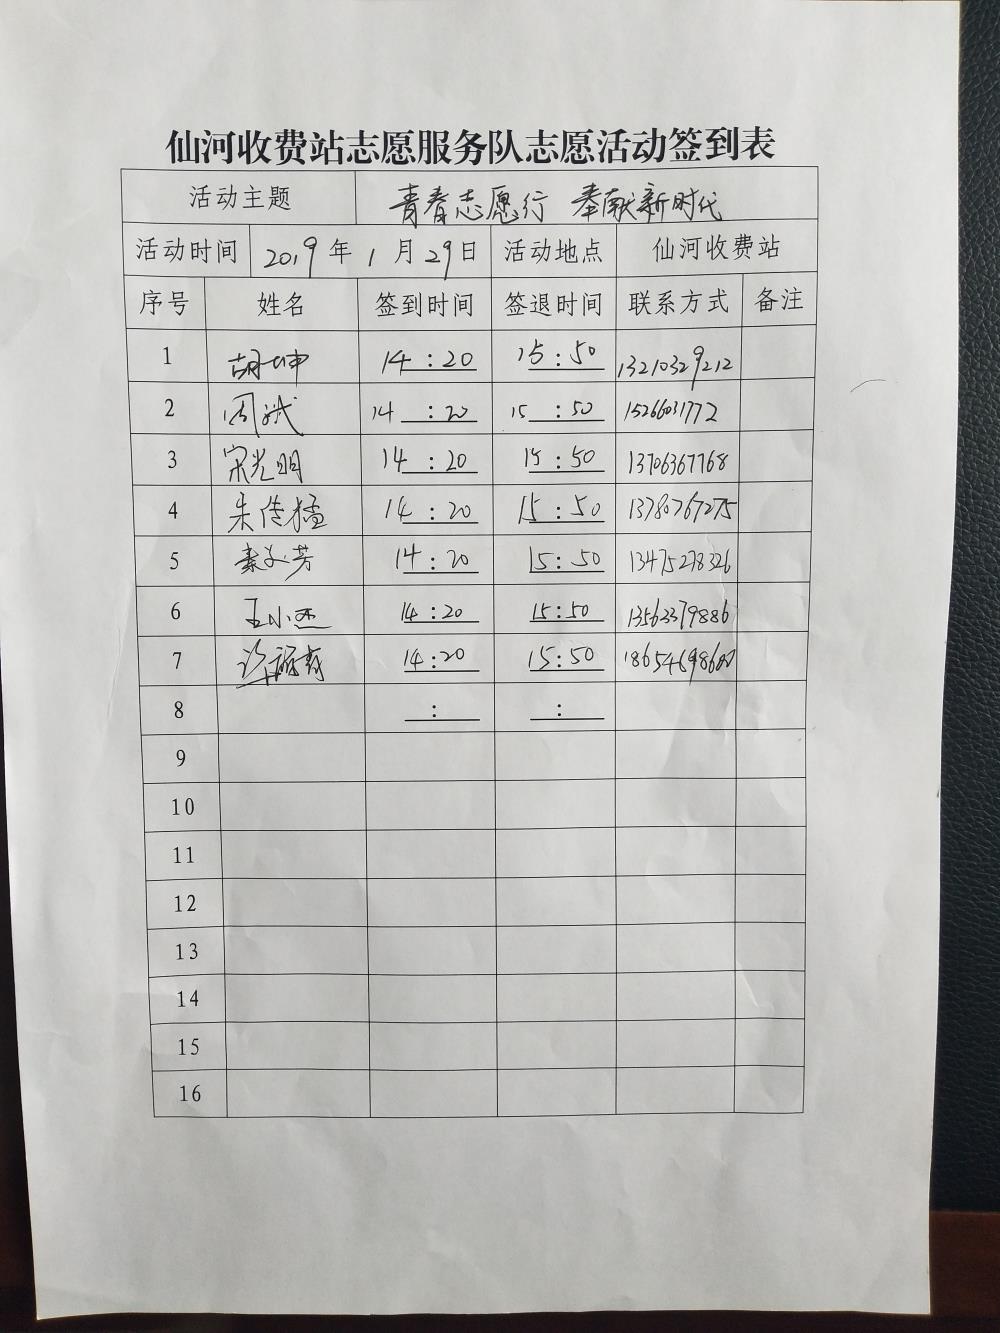 仙河收费站志愿服务队志愿活动签到表
活动主题 青春志愿行 奉献新时代
活动时间 2019年1月29日 活动地点 仙河收费站
序号 姓名 签到时间 签退时间 联系方式 备注
1 胡坤 14:20 15:50 13210329212
2 周斌 14:20 15:50 15266031772
3 宋光明 14:20 15:50 13706367768
4 朱传猛 14:20 15:50 13780767275
5 14:20 15:50 13475278326
6 王小杰 14:20 15:50 13562379886
7 14:20 15:50
8 : :
9
10
11
12
13
14
15
16